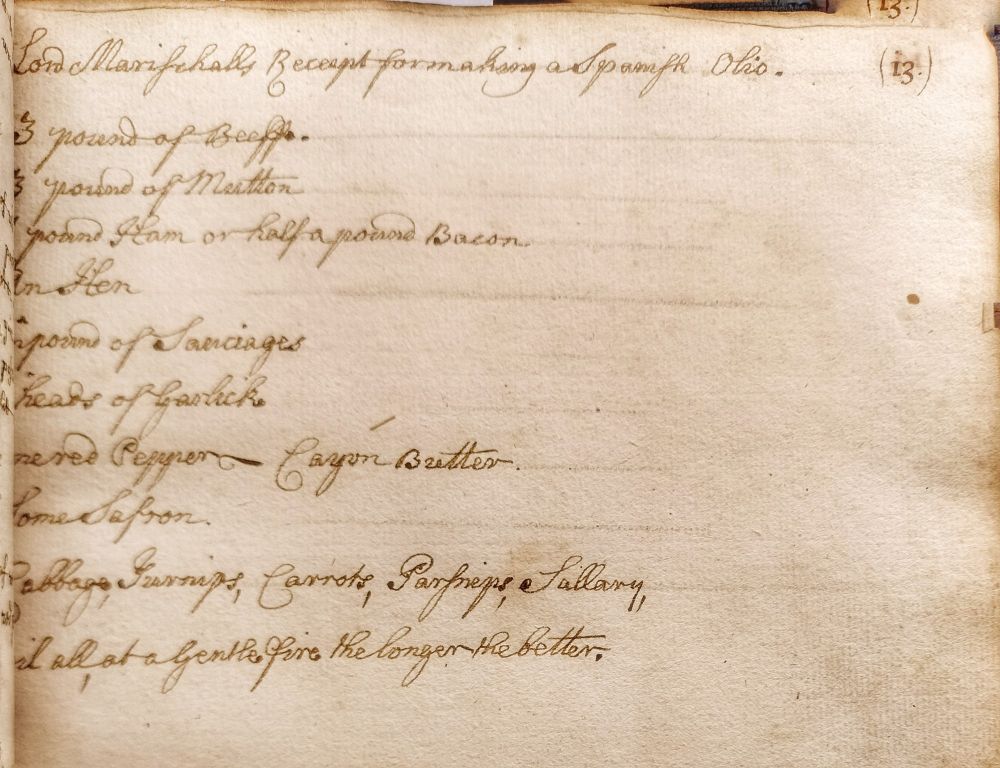 (13.)
Lord Marischalls Receipt for making a Spanish Olio. (13.)
3 pound of Beeff.
3 pound of Mutton
pound Ham or half a pound Bacon.
An Hen
pound of Sauciages
heads of Garlick
red Pepper Cayon Butter.
Some Safron.
Cabbage, Turnips, Carrots, Parsneps, Sallary,
all, at a Gentle fire the longer the better.